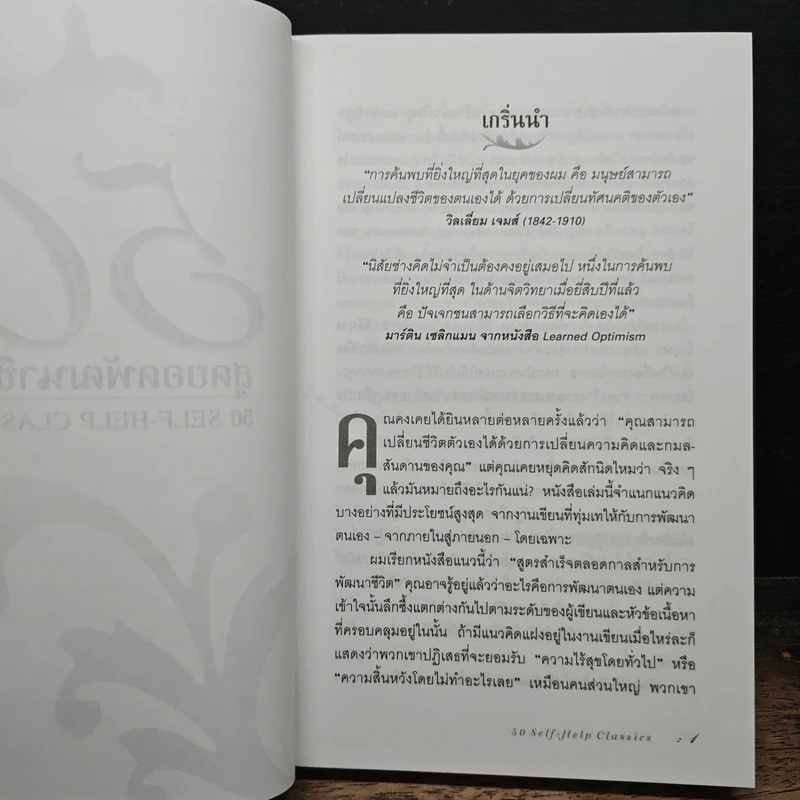 เกริ่นนำ
“การค้นพบที่ยิ่งใหญ่ที่สุดในยุคของผม คือ มนุษย์สามารถ
เปลี่ยนแปลงชีวิตของตนเองได้ ด้วยการเปลี่ยนทัศนคติของตัวเอง”
วิลเลี่ยม เจมส์ (1842-1910)
“นิสัยช่างคิดไม่จำเป็นต้องคงอยู่เสมอไป หนึ่งในการค้นพบ
ที่ยิ่งใหญ่ที่สุด ในด้านจิตวิทยาเมื่อยี่สิบปีที่แล้ว
คือ ปัจเจกชนสามารถเลือกวิธีที่จะคิดเองได้”
มาร์ติน เซลิกแมน จากหนังสือ Learned Optimism
คุณคงเคยได้ยินหลายต่อหลายครั้งแล้วว่า “คุณสามารถ
เปลี่ยนชีวิตตัวเองได้ด้วยการเปลี่ยนความคิดและกมล-
สันดานของคุณ” แต่คุณเคยหยุดคิดสักนิดไหมว่า จริง ๆ
แล้วมันหมายถึงอะไรกันแน่? หนังสือเล่มนี้จำแนกแนวคิด
บางอย่างที่มีประโยชน์สูงสุด จากงานเขียนที่ทุ่มเทให้กับการพัฒนา
ตนเอง – จากภายในสู่ภายนอก – โดยเฉพาะ
ผมเรียกหนังสือแนวนี้ว่า “สูตรสำเร็จตลอดกาลสำหรับการ
พัฒนาชีวิต” คุณอาจรู้อยู่แล้วว่าอะไรคือการพัฒนาตนเอง แต่ความ
เข้าใจนั้นลึกซึ้งแตกต่างกันไปตามระดับของผู้เขียนและหัวข้อเนื้อหา
ที่ครอบคลุมอยู่ในนั้น ถ้ามีแนวคิดแฝงอยู่ในงานเขียนเมื่อไหร่ละก็
แสดงว่าพวกเขาปฏิเสธที่จะยอมรับ “ความไร้สุขโดยทั่วไป” หรือ
“ความสิ้นหวังโดยไม่ทำอะไรเลย” เหมือนคนส่วนใหญ่ พวกเขา
50 Self-Help Classics : 1